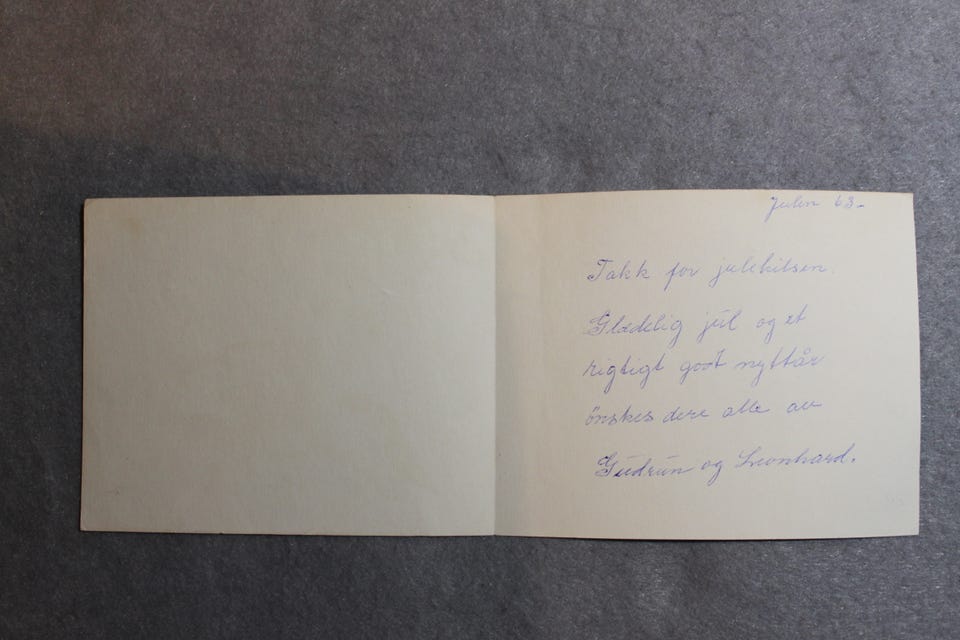 Julen 63.-
Takk for julehilsen.
Glædelig jul og et
rigtigt godt nyttår
ønskes dere alle av
Gudrun og Leonhard.